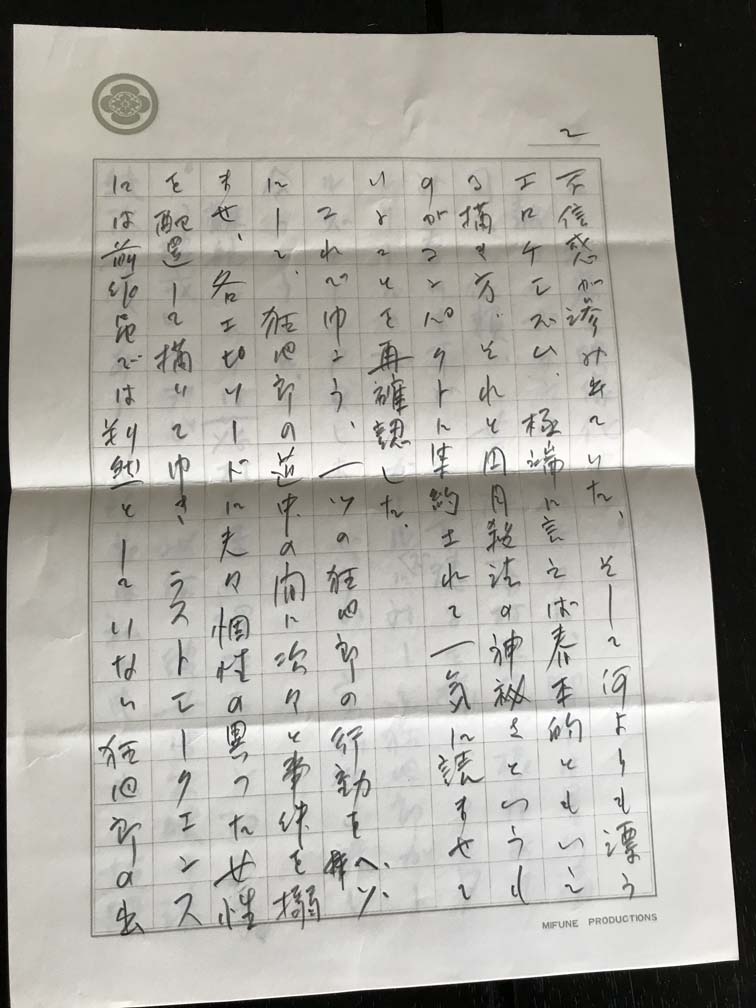 2
不信感が滲み出ていた、そして何よりも漂う
エロチズム、極端に言えば春本的ともいえ
る描き方、それと円月殺法の神秘さというも
のがコンパクトに集約されて一気に読ませて
いることを再確認した。
これでゆこう、一ツの狂四郎の行動を
にして、狂四郎の道中の間に次々と事件を
ませ、各エピソードに夫々個性の異った女性
を配置して描いてゆき、ラストエークエンス
には前組品では判然としていない狂四郎の出
MIFUNE PRODUCTIONS